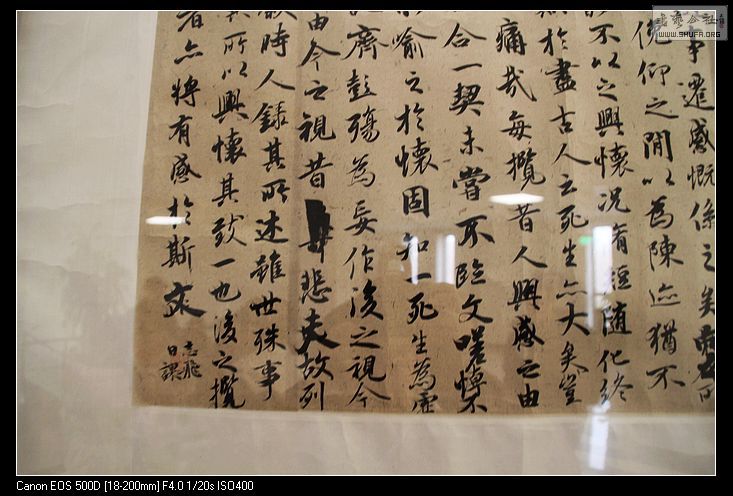 書藝公社
WWW.SHUFA.ORG
事遷感慨係之矣
俛仰之間以為陳迹猶不
不以之興懷況脩短隨化終
於盡古人云死生亦大矣豈
痛哉每攬昔人興感之由
合一契未嘗不臨文嗟悼不
喻之於懷固知一死生為虛
齊彭殤為妄作後之視今
由今之視昔悲夫故列
時人錄其所述雖世殊事
所以興懷其致一也後之攬
者亦將有感於斯文
志飛
日課
Canon EOS 500D [18-200mm] F4.0 1/20s ISO400